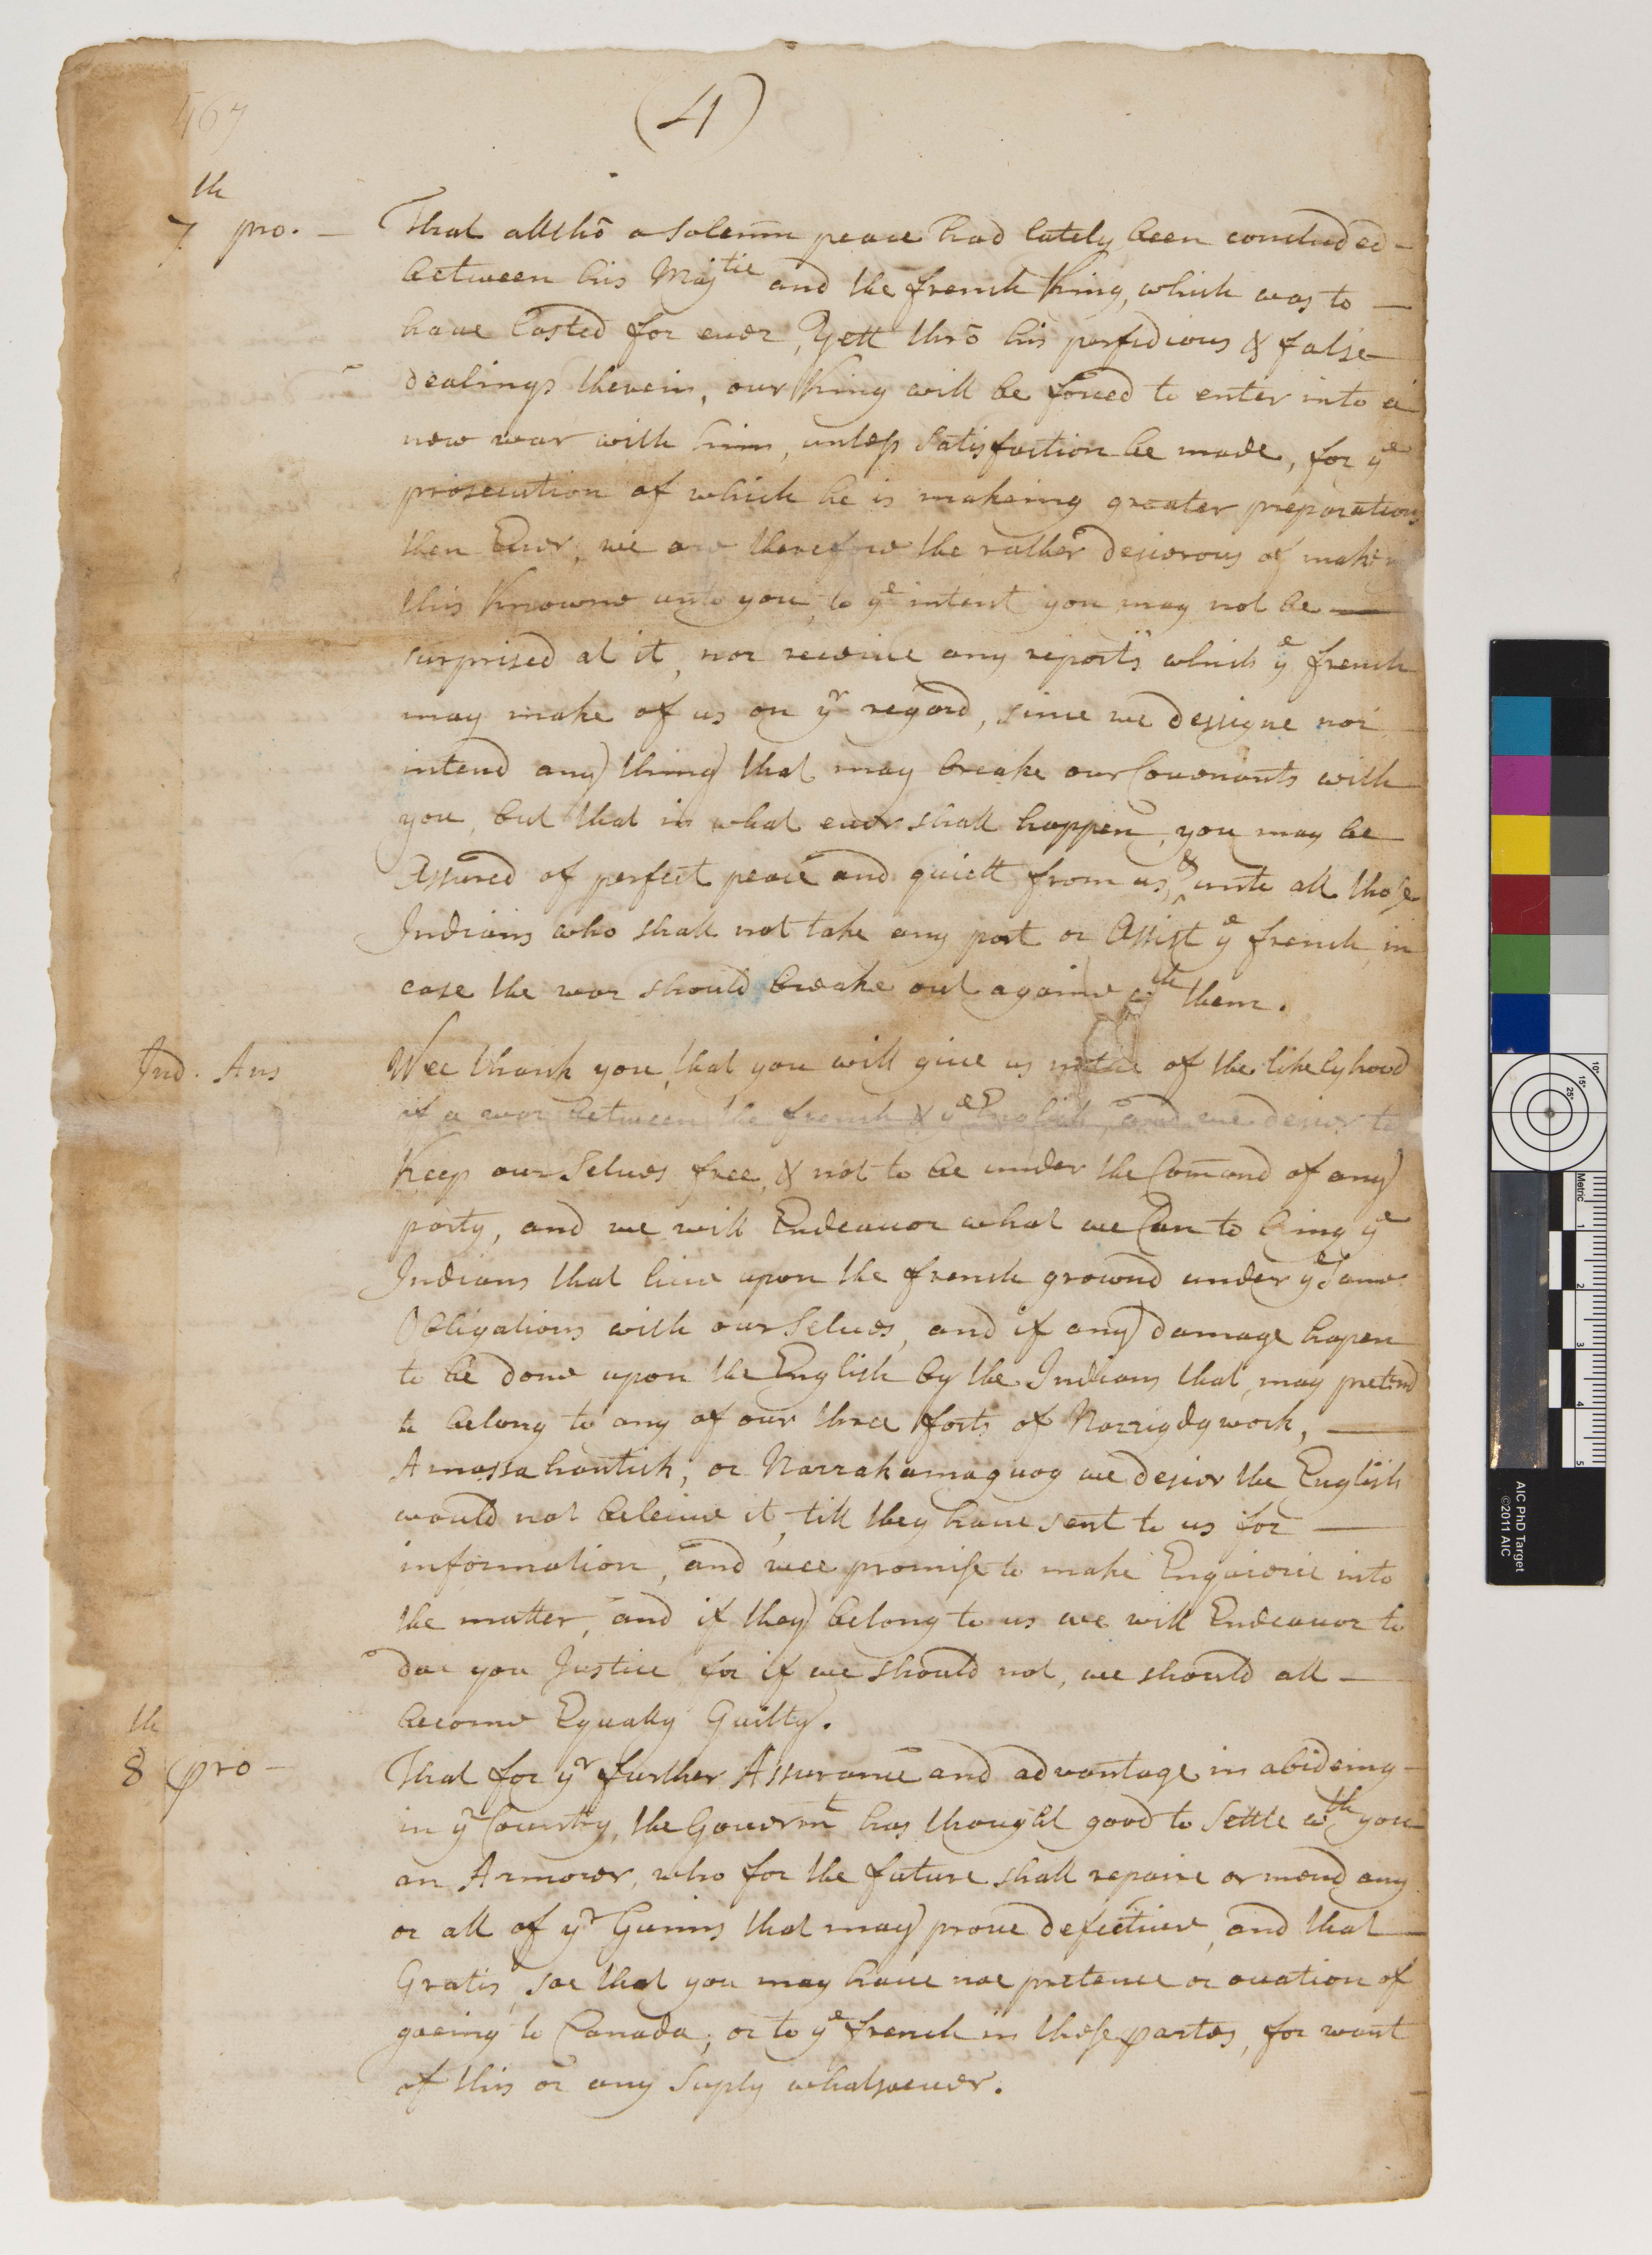 567
(4)
7th pro. — That altho a Solemn peace had lately been concluded —
between his Majtie and the french King, which was to —
have lasted for ever, Yett thrō his perfidious & false
dealings therein, our King will be forced to enter into a
new war with him, unless Satisfaction be made, for ye
prosecution of which he is makeing greater preparations
then Ever, we are therefore the rather desierous of makeing
this Knowne unto you, to ye intent you may not be —
surprised at it, nor receive any reports which ye french
may make of us on yr regard, since we designe nor
intend any thing that may breake our Covenants with
you, but that in what ever shall happen, you may be
Assured of perfect peace and quiett from us, & unto all those
Indians who shall not take any part or Assist ye french, in
case the war should breake out againe wth them.
Ind. Ans Wee thank you, that you will give us notice of the likelyhood
of a war between the french & ye English, and we desier to
Keep our Selves free, & not to be under the Comand of any
party, and we will Endeavor what we Can to bring ye
Indians that live upon the french ground under ye Same
Obligations with our Selves, and if any damage hapen
to be done upon the English by the Indians that may pretend
to belong to any of our three forts of Narrigdgwock, —
Amassacontick, or Narrakamagwog we desier the English
would not beleive it, till they have sent to us for —
information, and wee promise to make Enquierie into
the matter, and if they belong to us we will Endeavor to
doe you Justice, for if we should not, we should all —
become Equally Guilty.
8th pro — That for yr further Assurance and advantage in abideing —
in yr Country, the Governmt has thought good to Settle wth you
an Armorer, who for the future shall repaire or mend any
or all of yr Gunns that may prove defective, and that —
Gratis, soe that you may have noe pretence or ocation of
goeing to Canada, or to ye french in those partes, for want
of this or any Suply whatsoever.
AIC PhD Target
©2011 AIC
Metric
1
2
3
4
5
10°
15°
25°